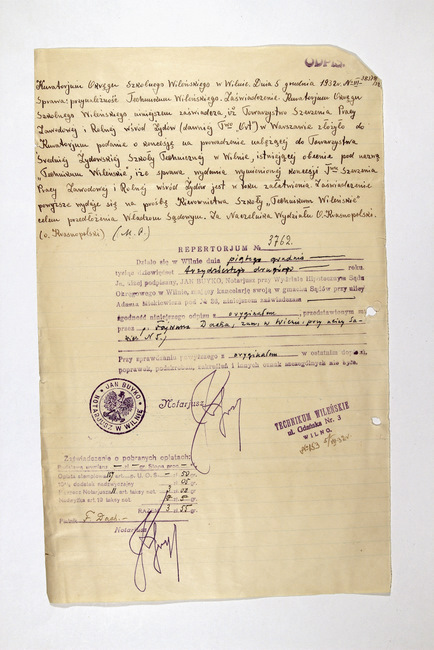 ODPIS.
Kuratorjum Okręgu Szkolnego Wileńskiego w Wilnie. Dnia 5 grudnia 1932 r. № VI-
Sprawa: przynależność Technikum Wileńskiego. Zaświadczenie. Kuratorjum Okręgu
Szkolnego Wileńskiego niniejszem zaświadcza, iż Towarzystwo Szerzenia Pracy
Zawodowej i Rolnej wśród Żydów (dawniej Two "Ort") w Warszawie złożyło do
Kuratorjum podanie o koncesję na prowadzenie należącej do Towarzystwa
Średniej Żydowskiej Szkoły Technicznej w Wilnie, istniejącej obecnie pod nazwą
"Technikum Wileńskie", iż sprawa wydania wymienionej koncesji Twu Szerzenia
Pracy Zawodowej i Rolnej wśród Żydów jest w toku załatwienia. Zaświadczenie
powyższe wydaje się na prośbę Kierownictwa Szkoły "Technikum Wileńskie"
celem przedłożenia Władzom Sądowym. Za Naczelnika Wydziału O. Krasnopolski.
(o. Krasnopolski) (M. P.)
REPERTORJUM № 3762.
Działo się w Wilnie dnia piątego grudnia
tysiąc dziewięćset trzydziestego drugiego roku.
Ja, niżej podpisany, JAN BUYKO, Notarjusz przy Wydziale Hipotecznym Sądu
Okręgowego w Wilnie, mający kancelarję swoją w gmachu Sądów przy ulicy
Adama Mickiewicza pod № 36, niniejszem zaświadczam
zgodność niniejszego odpisu z oryginałem, przedstawionym mi
przez
Przy sprawdzaniu powyższego z oryginałem w ostatnim dopisków,
poprawek, podskrobań, zakreśleń i innych oznak szczególnych nie było.
JAN BUYKO
NOTARJUSZ W WILNIE
Notarjusz:
TECHNIKUM WILEŃSKIE
ul. Gdańska Nr. 3
WILNO.
Zaświadczenie o pobranych opłatach:
Opłata stemplowa art. U. O. S. 50
10% dodatek nadzwyczajny 05
Notarjusz art. taksy not.
art 19 taksy not.
RAZEM 3 55
Notarjusz